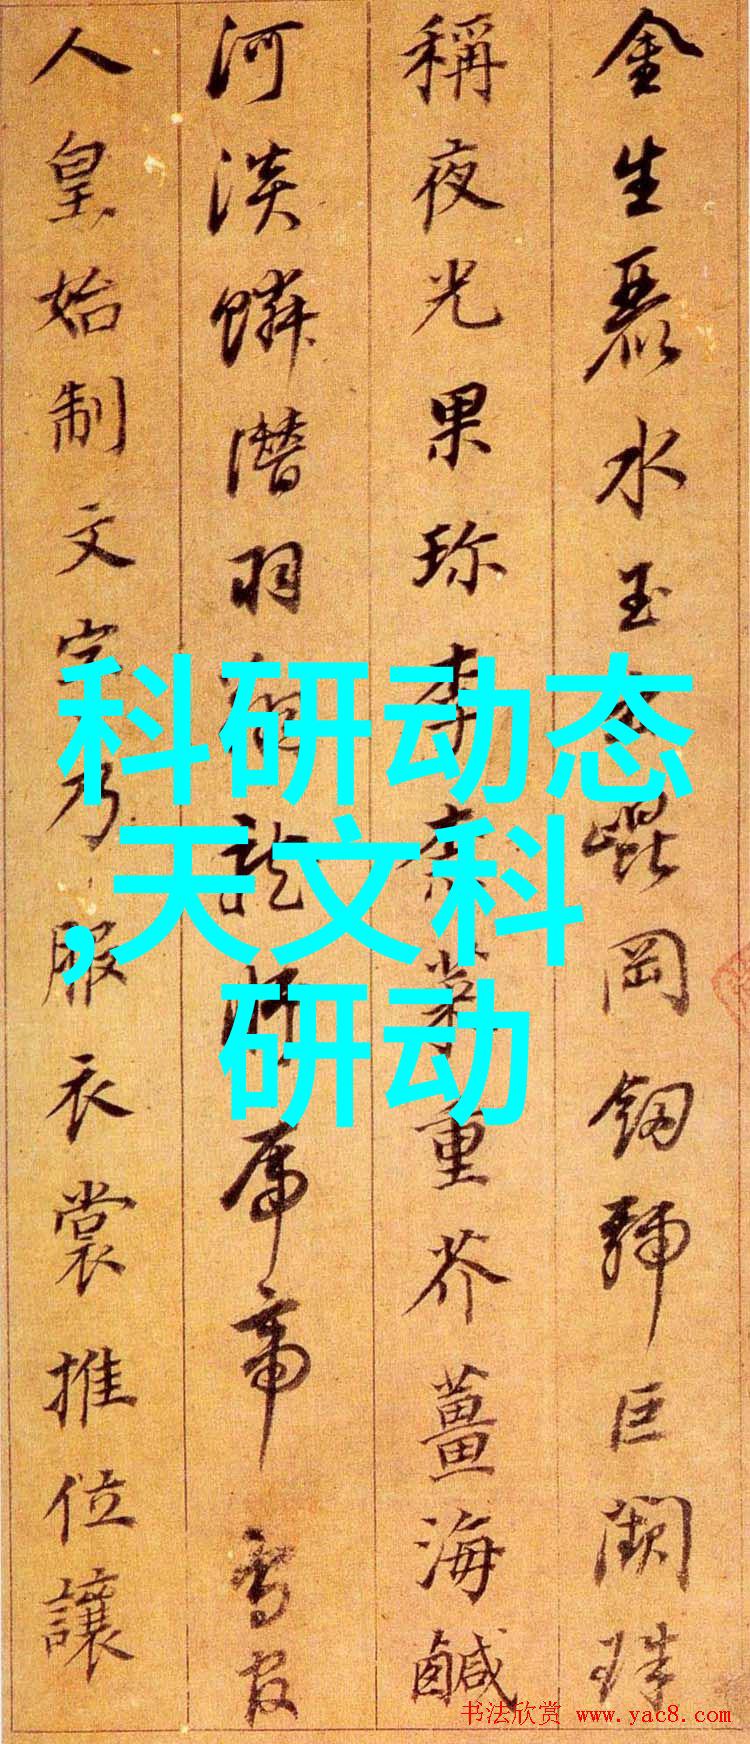 金生麗水玉出崐岡劔號巨闕珠
稱夜光果珎李柰菜重芥薑海鹹
河淡鱗潛羽翔龍師火帝鳥官
人皇始制文字乃服衣裳推位讓
科研动态
,天文科
研动
书法欣赏 www.yac8.com